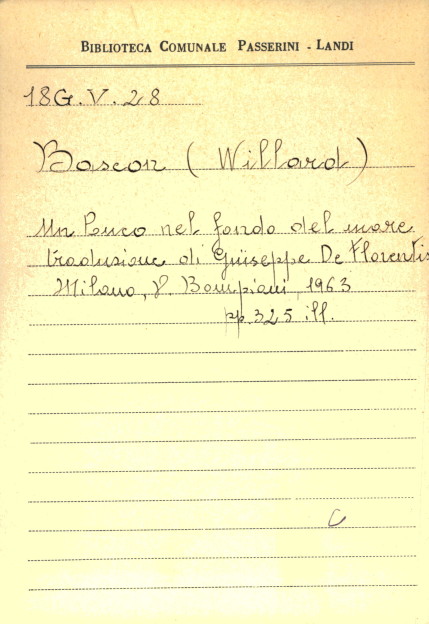 BIBLIOTECA COMUNALE PASSERINI - LANDI
18G.V.28
Bascon (Willard)
Un buco nel fondo del mare
traduzione di Giuseppe De Florentis
Milano, V. Bompiani, 1963
pp. 325 ill.
C